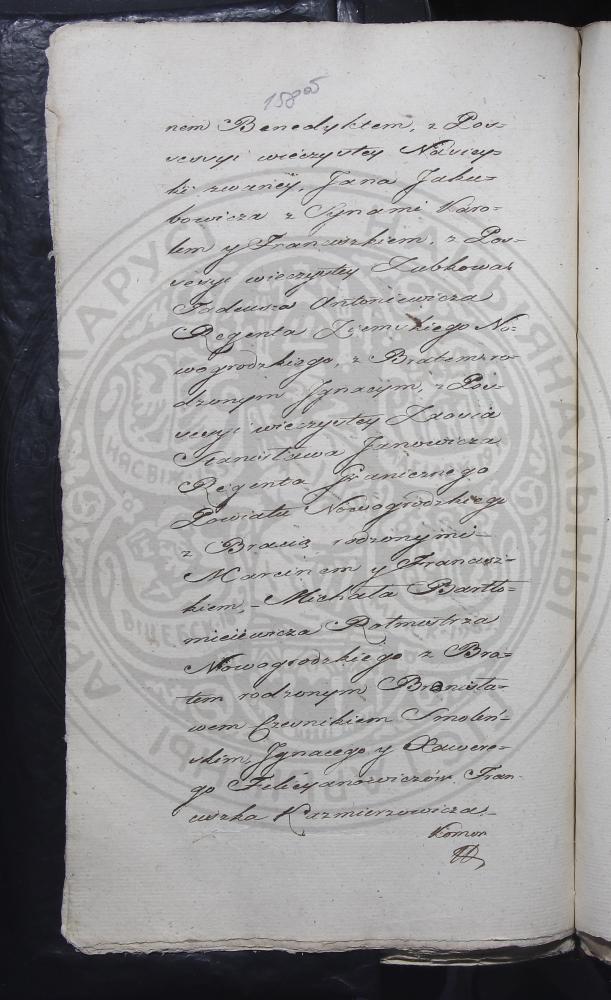 nem Benedyktem, z Pos=
sessyi wieczystey Nawicy=
ki zwaney, Jana Jaku=
bowicza z Synami Karo=
lem y Franciszkiem, z Pos=
sesyi wieczystey Lubkowa
Tadeusza Antoniewicza
Regenta Ziemskiego No=
wogrodzkiego, z Bratem ro=
dzonym Ignacym, z Pos=
sessyi wieczystey
Stanisława Janowicza
Regenta Granicznego
Powiatu Nowogrodzkiego
z Bracią rodzonymi
Marcinem y Francisz=
kiem,- Michała Bartło=
mieiewicza Rotmistrza
Nowogrodzkiego z Bra=
tem rodzonym Bronisła=
wem Czesnikiem Smoleń=
skim, Ignacego y Xawere=
go Felicyanowiczów. Fran=
ciszka Kazmierzowicza,-
Komor